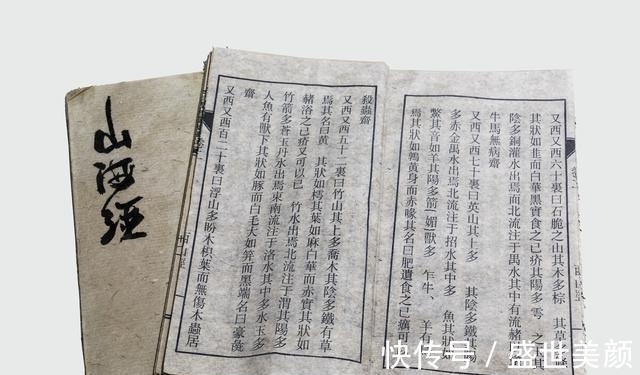 山海經
又西又西六十裏曰石脆之山其木多棕 其草多
其狀如韭而白華黑實食之已疥其陽多 雩 之 其
陰多銅灌水出焉而北流注于禺水其中有流赭
牛馬無病齋
又西又西七十裏曰英山其上多 其陰多鐵其陽
多赤金禺水出焉北流注于招水其中多 魚其狀如
鱉其音如羊其陽多箭 媚獸多 乍牛、 羊有
焉其狀如鶉黃身而赤喙其名曰肥遺食之已癘可
殺蟲齋
又西又西五十二裏曰竹山其上多喬木其陰多鐵有草
焉其名曰黄 其狀如樗其葉如麻白華而赤實其狀如
赭浴之已疥又可以已 竹水出焉北流注于渭其陽多
竹箭多蒼玉丹水出焉東南流注于洛水其中多水玉多
人魚有獸下其狀如豚而白毛大如笄而黑端名曰豪彘
齋
又西又西百二十裏曰浮山多盼木枳葉而無傷木蟲居
西山經
快传号/盛世美颜